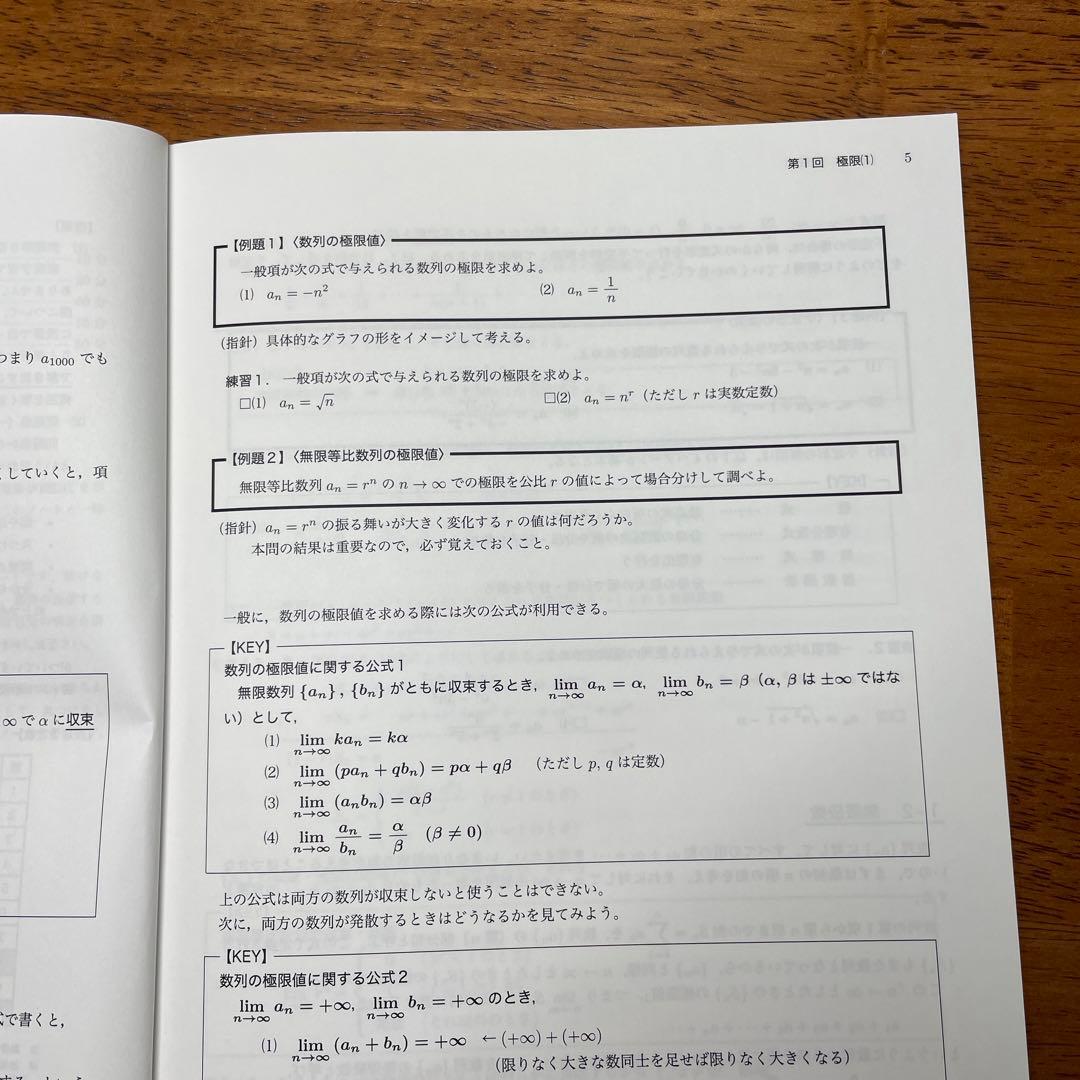 第1回 極限(1) 5
【例題1】〈数列の極限値〉
一般項が次の式で与えられる数列の極限を求めよ。
(1) aₙ = −n² (2) aₙ = 1/n
(指針) 具体的なグラフの形をイメージして考える。
練習1. 一般項が次の式で与えられる数列の極限を求めよ。
□(1) aₙ = √n □(2) aₙ = nʳ (ただし r は実数定数)
【例題2】〈無限等比数列の極限値〉
無限等比数列 aₙ = rⁿ の n → ∞ での極限を公比 r の値によって場合分けして調べよ。
(指針) aₙ = rⁿ の振る舞いが大きく変化する r の値は何だろうか。
本問の結果は重要なので,必ず覚えておくこと。
一般に,数列の極限値を求める際には次の公式が利用できる。
【KEY】
数列の極限値に関する公式1
無限数列 {aₙ}, {bₙ} がともに収束するとき, lim n→∞ aₙ = α, lim n→∞ bₙ = β (α, β は ±∞ ではな
い) として,
(1) lim n→∞ kaₙ = kα
(2) lim n→∞ (paₙ + qbₙ) = pα + qβ (ただし p, q は定数)
(3) lim n→∞ (aₙbₙ) = αβ
(4) lim n→∞ aₙ/bₙ = α/β (β ≠ 0)
上の公式は両方の数列が収束しないと使うことはできない。
次に,両方の数列が発散するときはどうなるかを見てみよう。
【KEY】
数列の極限値に関する公式2
lim n→∞ aₙ = +∞, lim n→∞ bₙ = +∞ のとき,
(1) lim n→∞ (aₙ + bₙ) = +∞ ← (+∞) + (+∞)
(限りなく大きな数同士を足せば限りなく大きくなる)
つまり a₁₀₀₀ でも
していくと,項
∞ で α に収束
式で書くと,